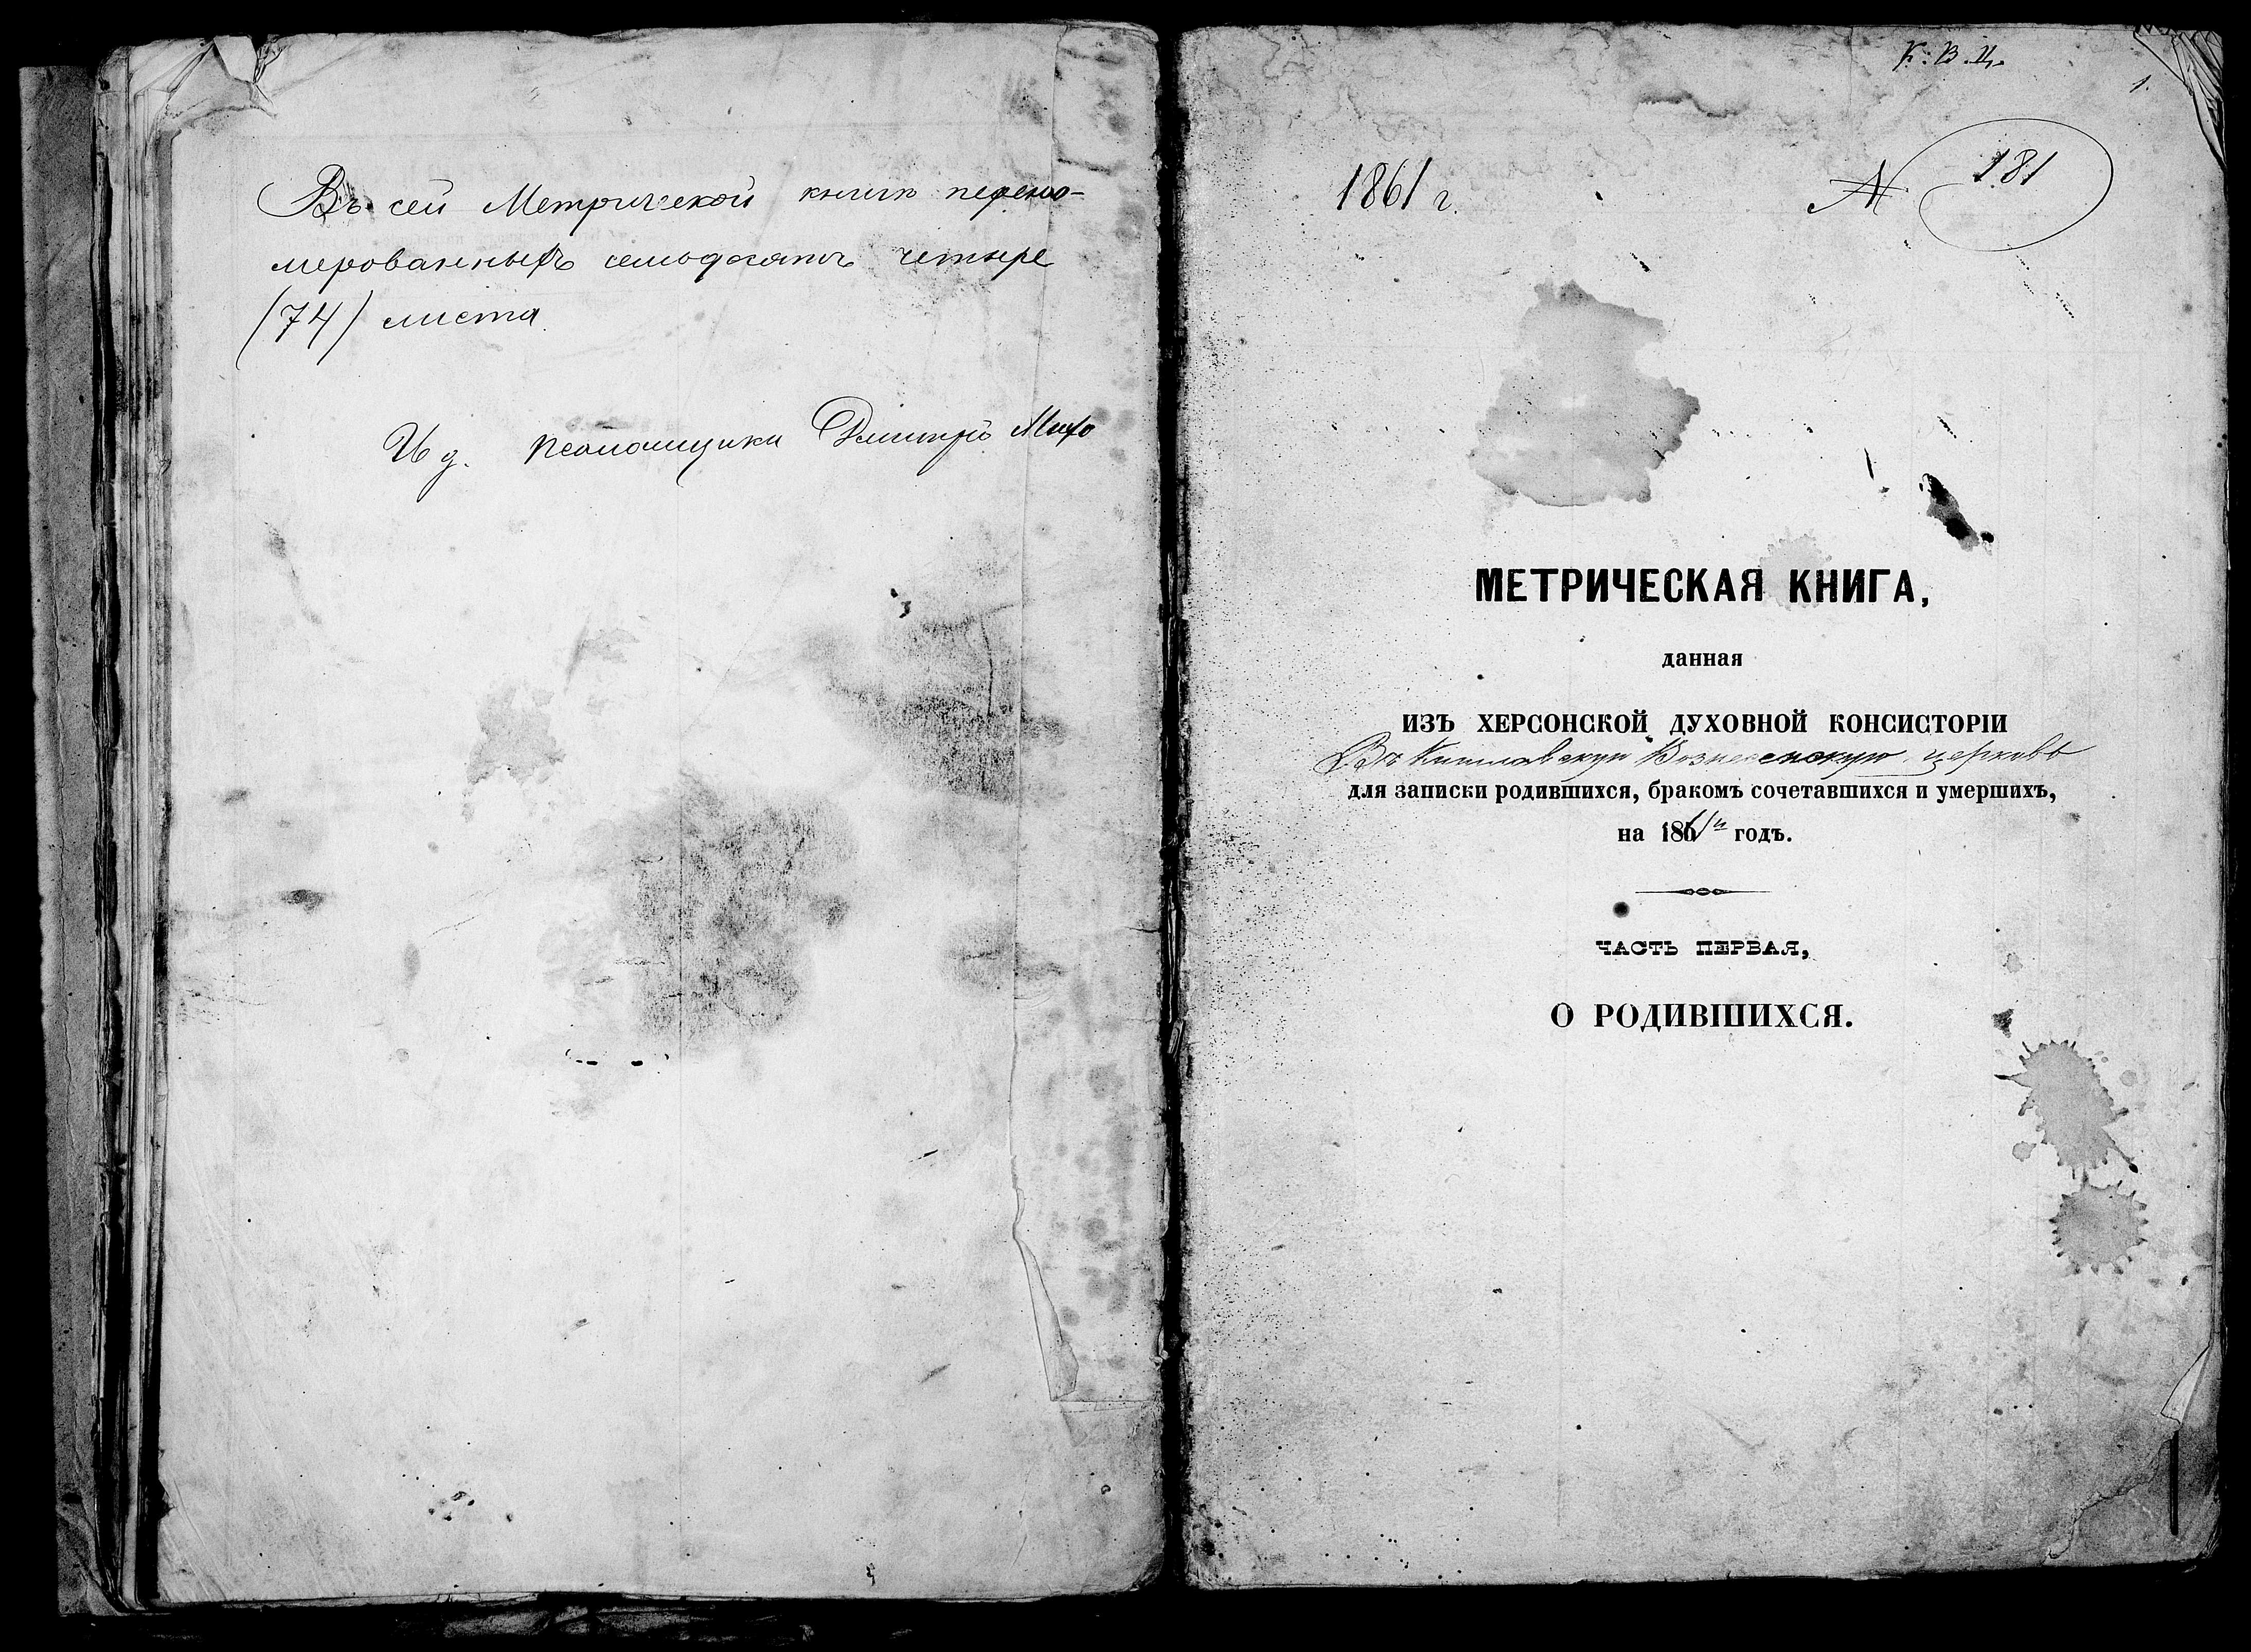 Въ сей Метрической книгѣ перено-
мерованныхъ семьдесятъ четыре
(74) листа
И д. псаломщика Дмитрій
К. В. Ц.
1.
1861 г.
№ 181
МЕТРИЧЕСКАЯ КНИГА,
данная
ИЗЪ ХЕРСОНСКОЙ ДУХОВНОЙ КОНСИСТОРІИ
Въ Вознесенскую церковь
для записки родившихся, бракомъ сочетавшихся и умершихъ,
на 1861й годъ.
ЧАСТЬ ПЕРВАЯ,
О РОДИВШИХСЯ.